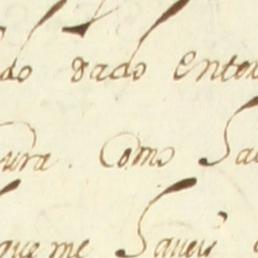 do dado enton
ura. Como Sa
que me Saveis